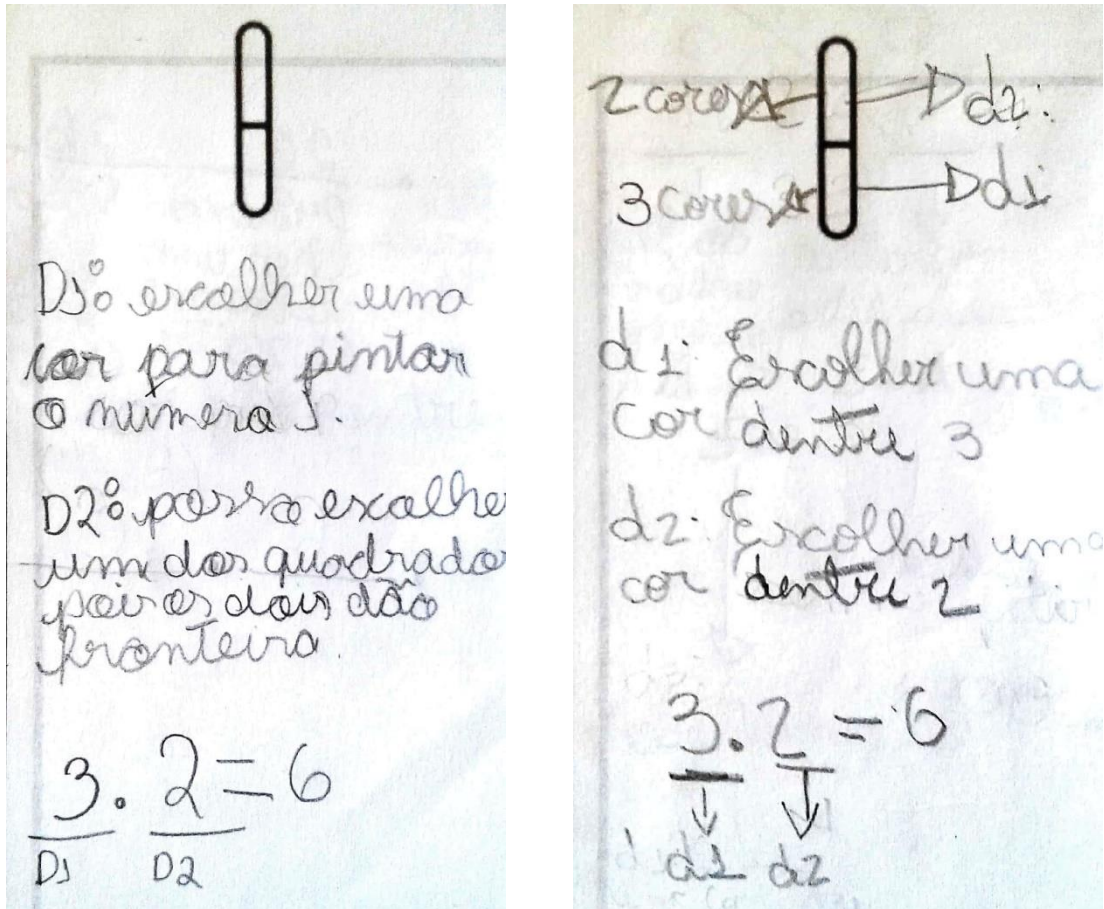 D1: escolher uma
cor para pintar
o número 1.
D2: posso escolhe
um dos quadrado
pois os dois dão
fronteira.
3 . 2 = 6
D1 D2
2 cores
d2:
3 cores
d1
d1: Escolher uma
cor dentre 3
d2: Escolher uma
cor dentre 2
3 . 2 = 6
d1 d2